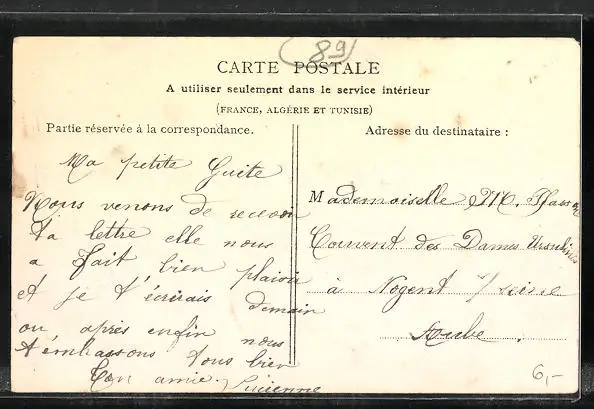 89
CARTE POSTALE
A utiliser seulement dans le service intérieur
(FRANCE, ALGÉRIE ET TUNISIE)
Partie réservée à la correspondance.
Adresse du destinataire :
Ma petite Guite
Nous venons de recevoir
ta lettre elle nous
a fait bien plaisir
et je t'écrirais demain
ou après enfin nous
t'embrassons tous bien
Ton amie Lucienne
Mademoiselle M.
Couvent des Dames Ursulines
à Nogent s/ seine
Aube.
6,-